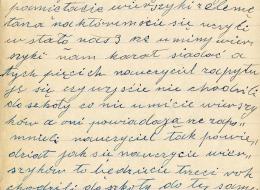 pamiętacie wierszyki zeleme
tara na którymeście się uczyli
w stało nas 3 nie uminy wier
szyki nam karat siadać a
tych pięcich nauczyciel rozpytu
je się czyuyście nie chodzili
do szkoły co nie umicie wierszy
ków a oni powiadają ne zapo
mnieli nauczyciel tak powie
dział jak się nauczycie wier
szyków to będziecie trzeci rok
chodzili do szkoły do tej samej